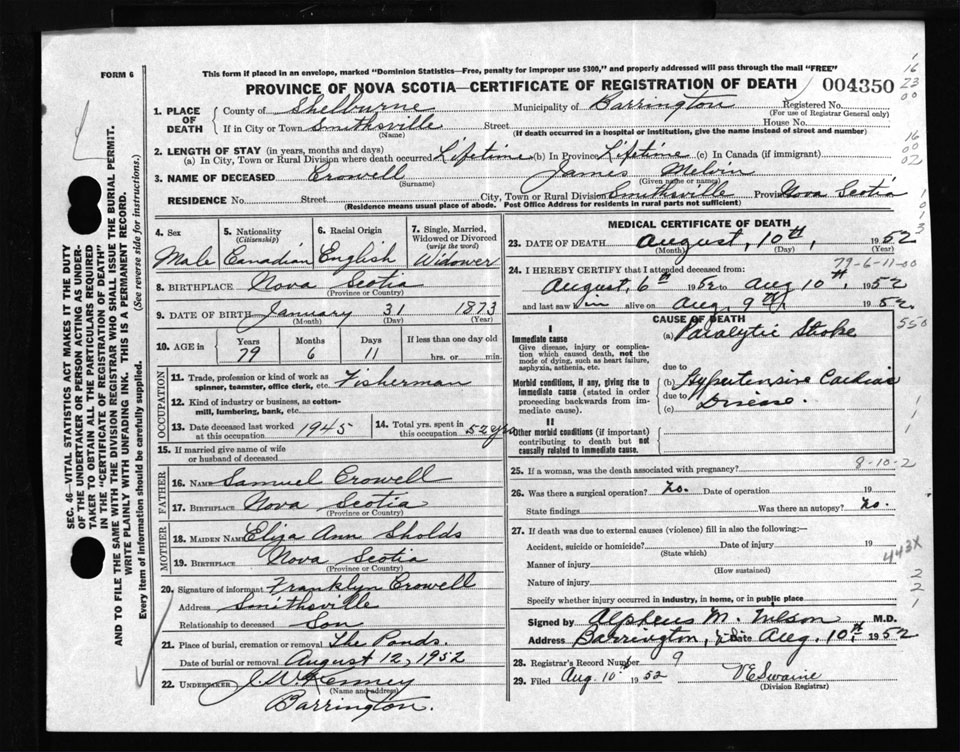 FORM 6
This form if placed in an envelope, marked "Dominion Statistics—Free, penalty for improper use $300," and properly addressed will pass through the mail "FREE"
PROVINCE OF NOVA SCOTIA—CERTIFICATE OF REGISTRATION OF DEATH 004350
1. PLACE OF DEATH
County of Shelburne Municipality of Barrington Registered No.
(For use of Registrar General only)
If in City or Town Smithsville Street House No.
(Name) (If death occurred in a hospital or institution, give the name instead of street and number)
2. LENGTH OF STAY (in years, months and days)
(a) In City, Town or Rural Division where death occurred Lifetime (b) In Province Lifetime (c) In Canada (if immigrant)
3. NAME OF DECEASED Crowell James Melvin
(Surname) (Given name or names)
RESIDENCE No. Street City, Town or Rural Division Smithsville Province Nova Scotia
(Residence means usual place of abode. Post Office Address for residents in rural parts not sufficient)
4. Sex
Male
5. Nationality
(Citizenship)
Canadian
6. Racial Origin
English
7. Single, Married, Widowed or Divorced
(write the word)
Widower
8. BIRTHPLACE Nova Scotia
(Province or Country)
9. DATE OF BIRTH January 31 1873
(Month) (Day) (Year)
10. AGE in
Years Months Days If less than one day old
79 6 11 hrs. or min.
OCCUPATION
11. Trade, profession or kind of work as spinner, teamster, office clerk, etc. Fisherman
12. Kind of industry or business, as cotton-mill, lumbering, bank, etc.
13. Date deceased last worked at this occupation 1945
14. Total yrs. spent in this occupation 52 yrs
15. If married give name of wife or husband of deceased
FATHER
16. NAME Samuel Crowell
17. BIRTHPLACE Nova Scotia
(Province or Country)
MOTHER
18. MAIDEN NAME Eliza Ann Sholds
19. BIRTHPLACE Nova Scotia
(Province or Country)
20. Signature of informant Franklyn Crowell
Address Smithsville
Relationship to deceased Son
21. Place of burial, cremation or removal The Ponds.
Date of burial or removal August 12, 1952
22. UNDERTAKER J. W. Kenney
(Name and address)
Barrington.
MEDICAL CERTIFICATE OF DEATH
23. DATE OF DEATH August, 10th, 1952
(Month) (Day) (Year)
79-6-11-00
24. I HEREBY CERTIFY that I attended deceased from:
August, 6th 1952 to Aug 10th, 1952
and last saw him alive on Aug. 9th 1952.
CAUSE OF DEATH
I
Immediate cause
Give disease, injury or complication which caused death, not the mode of dying, such as heart failure, asphyxia, asthenia, etc.
(a) Paralytic Stroke
due to
Morbid conditions, if any, giving rise to immediate cause (stated in order proceeding backwards from immediate cause).
(b) Hypertensive Cardiac
due to Disease.
(c)
II
Other morbid conditions (if important) contributing to death but not causally related to immediate cause.
550
8-10-2
25. If a woman, was the death associated with pregnancy?
26. Was there a surgical operation? No. Date of operation 19
State findings Was there an autopsy? No.
27. If death was due to external causes (violence) fill in also the following:—
Accident, suicide or homicide? Date of injury 19
(State which)
443X
Manner of injury
(How sustained)
Nature of injury
Specify whether injury occurred in industry, in home, or in public place
Signed by Alpheus M. Wilson M.D.
Address Barrington, Date Aug. 10th 1952
28. Registrar's Record Number 9
29. Filed Aug 10 1952
(Division Registrar)
SEC. 46—VITAL STATISTICS ACT MAKES IT THE DUTY OF THE UNDERTAKER OR PERSON ACTING AS UNDERTAKER TO OBTAIN ALL THE PARTICULARS REQUIRED IN THE "CERTIFICATE OF REGISTRATION OF DEATH" AND TO FILE THE SAME WITH THE DIVISION REGISTRAR WHO SHALL ISSUE THE BURIAL PERMIT.
WRITE PLAINLY WITH UNFADING INK. THIS IS A PERMANENT RECORD.
Every item of information should be carefully supplied. (See reverse side for instructions.)